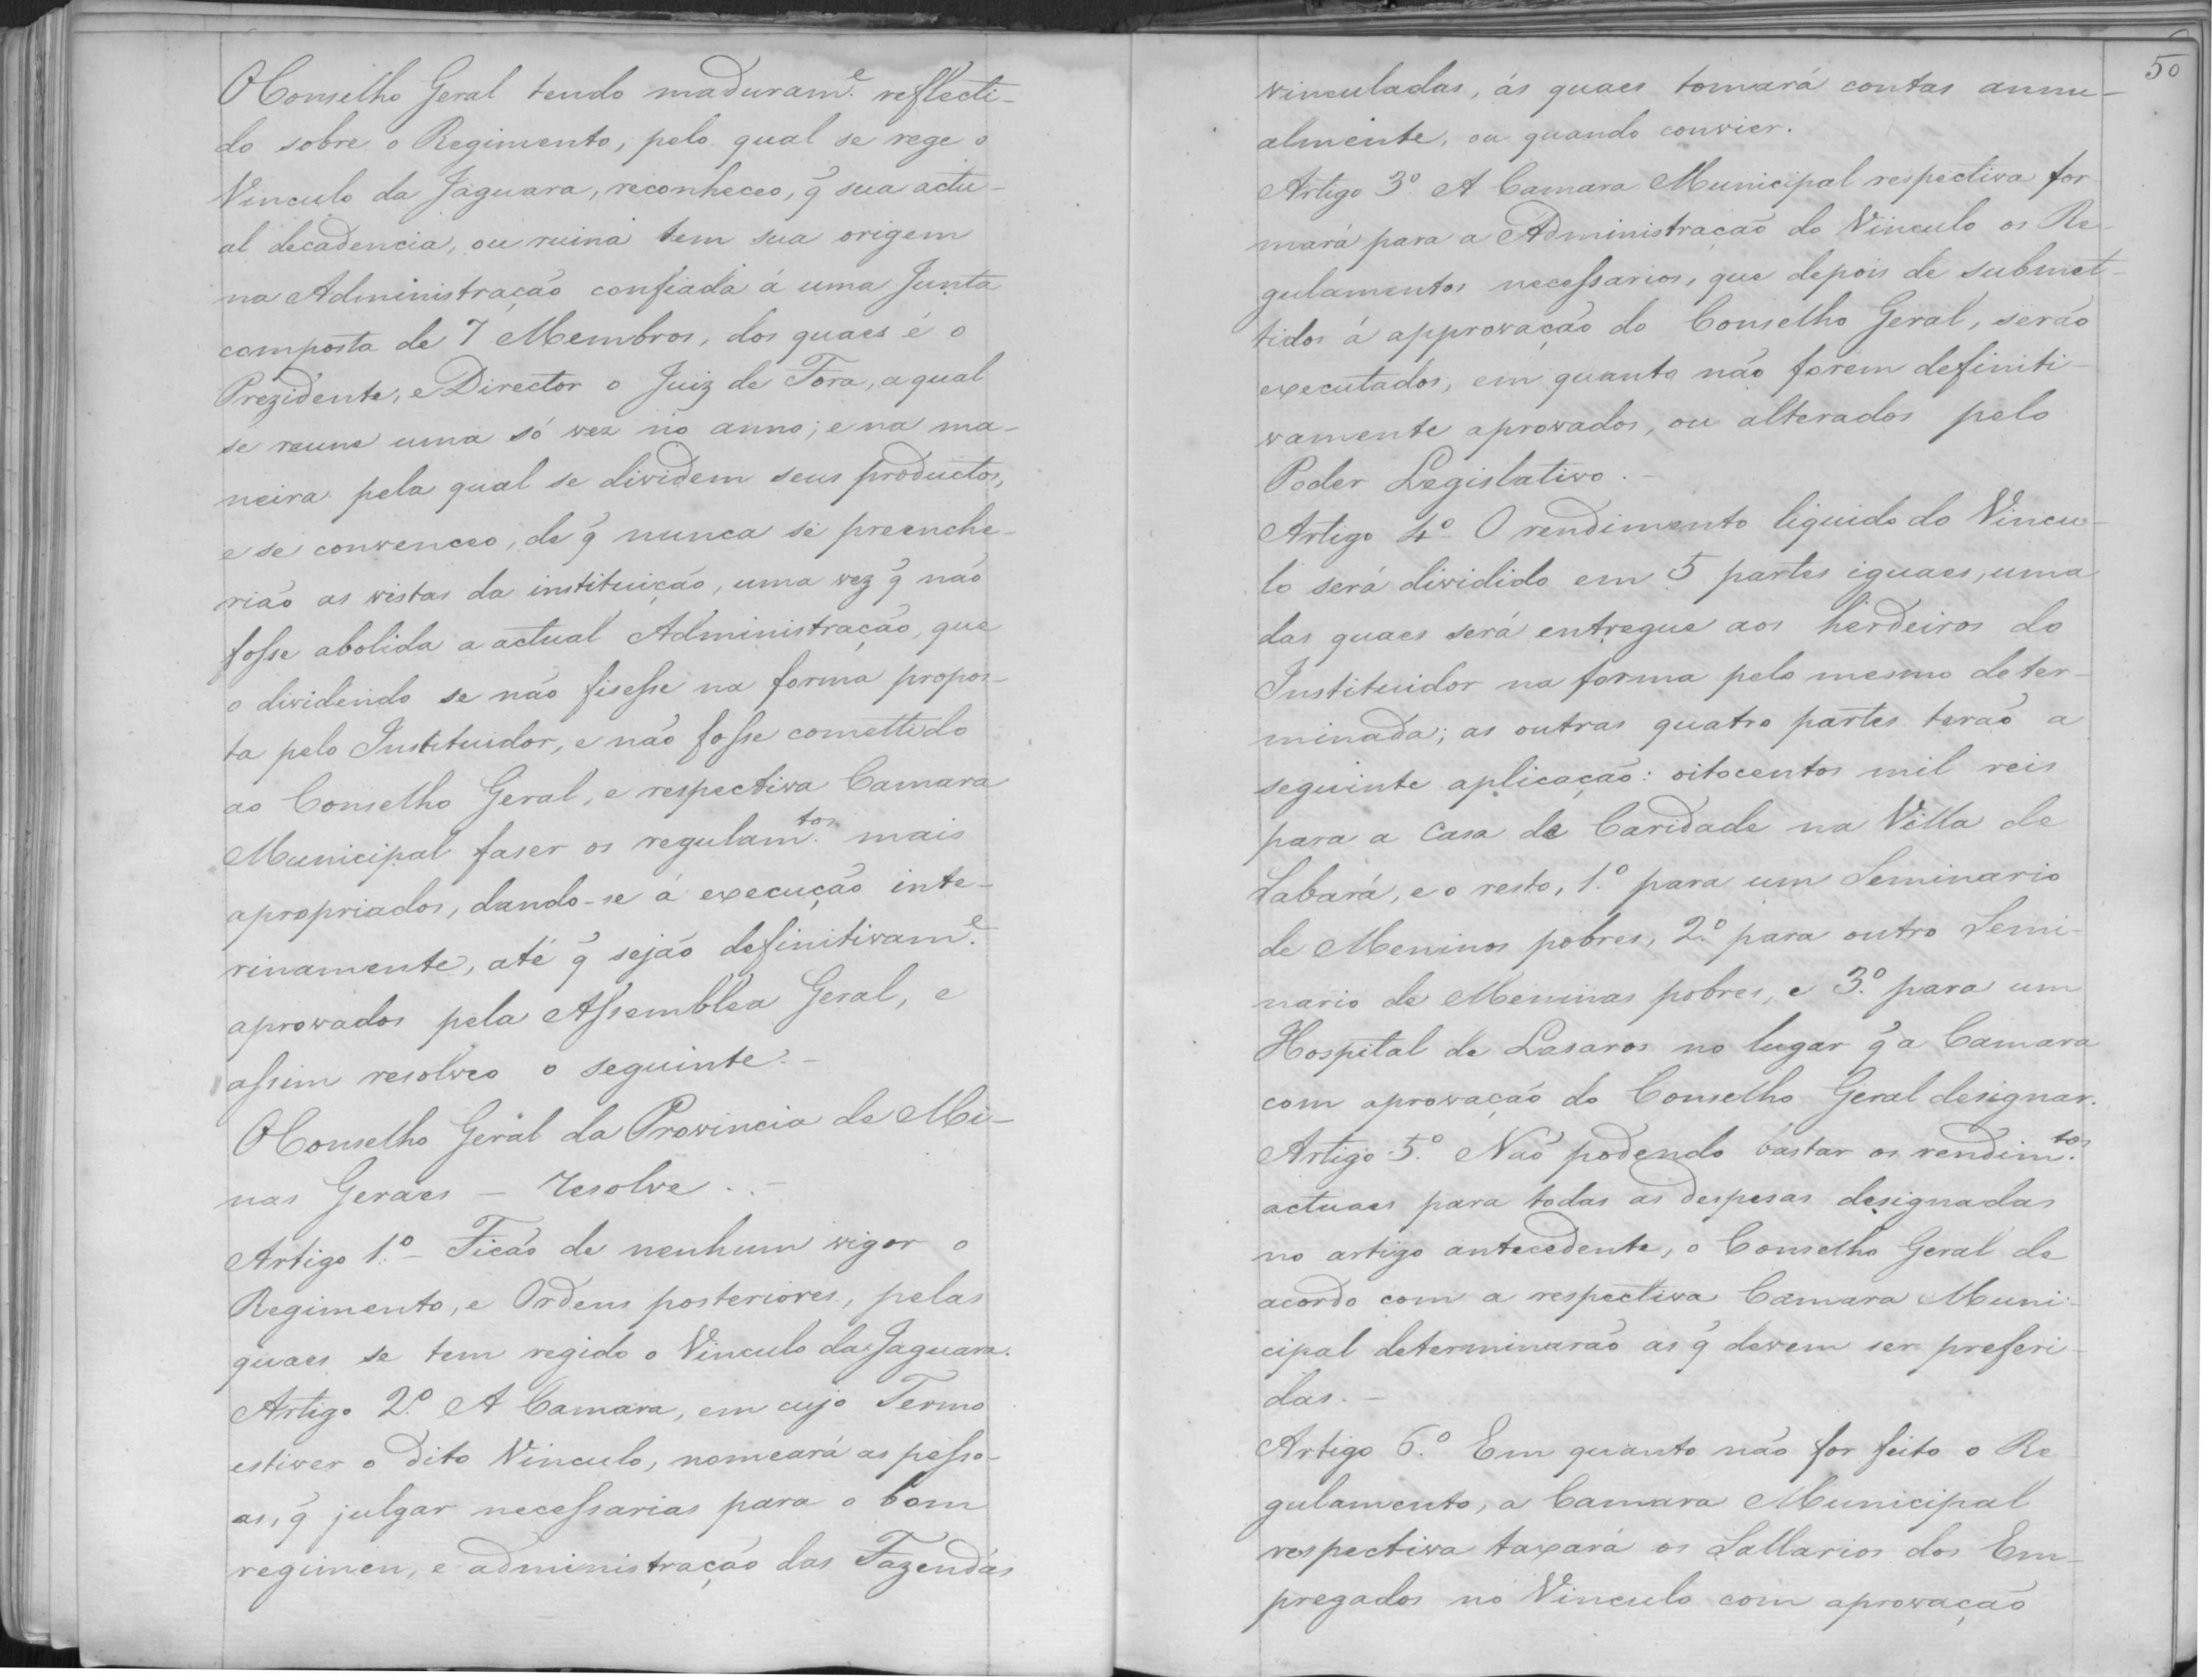 O Conselho Geral tendo maduram.e reflecti-
do sobre o Regimento, pelo qual se rege o
Vinculo da Jaguara, reconheceo, q̃ sua actu-
al decadencia, ou ruina tem sua origem
na Administração confiada á uma Junta
composta de 7 Membros, dos quaes é o
Prezidente, e Director o Juiz de Fora, a qual
se reune uma só vez no anno; e na ma-
neira pela qual se dividem seus productos,
e se convenceo, de q̃ nunca se preenche-
rião as vistas da instituição, uma vez q̃ não
fosse abolida a actual Administração, que
o dividendo se não fisesse na forma propos-
ta pelo Instituidor, e não fosse comettido
ao Conselho Geral, e respectiva Camara
Municipal faser os regulam.tos mais
apropriados, dando-se á execução inte-
rinamente, até q̃ sejão definitivam.e
aprovados pela Assemblea Geral, e
assim resolveo o seguinte.-
O Conselho Geral da Provincia de Mi-
nas Geraes - Resolve..-
Artigo 1.º - Ficão de nenhum vigor o
Regimento, e Ordens posteriores, pelas
quaes se tem regido o Vinculo da Jaguara.
Artigo 2.º A Camara, em cujo Termo
estiver o dito Vinculo, nomeará as pesso-
as, q̃ julgar necessarias para o bom
regimen, e administração das Fazendas
50
vinculadas, ás quaes tomará contas annu-
almente, ou quando convier.
Artigo 3.º A Camara Municipal respectiva for-
mará para a Administração do Vinculo os Re-
gulamentos necessarios, que depois de submet-
tidos á approvação do Conselho Geral, serão
executados, em quanto não forem definiti-
vamente aprovados, ou alterados pelo
Poder Legislativo.-
Artigo 4.º O rendimento liquido do Vincu-
lo será dividido em 5 partes iguaes, uma
das quaes será entregue aos herdeiros do
Instituidor na forma pelo mesmo deter-
minada; as outras quatro partes terão a
seguinte aplicação: oitocentos mil reis
para a Casa de Caridade na Villa de
Sabará, e o resto, 1.º para um Seminario
de Meninos pobres, 2.º para outro Semi-
nario de Meninas pobres, e 3.º para um
Hospital de Lasaros no lugar q̃ a Camara
com aprovação do Conselho Geral designar.
Artigo 5.º Não podendo bastar os rendim.tos
actuaes para todas as despesas designadas
no artigo antecedente, o Conselho Geral de
acordo com a respectiva Camara Muni-
cipal determinarão as q̃ devem ser preferi-
das.-
Artigo 6.º Em quanto não for feito o Re-
gulamento, a Camara Municipal
respectiva taxará os Sallarios dos Em-
pregados no Vinculo com aprovação